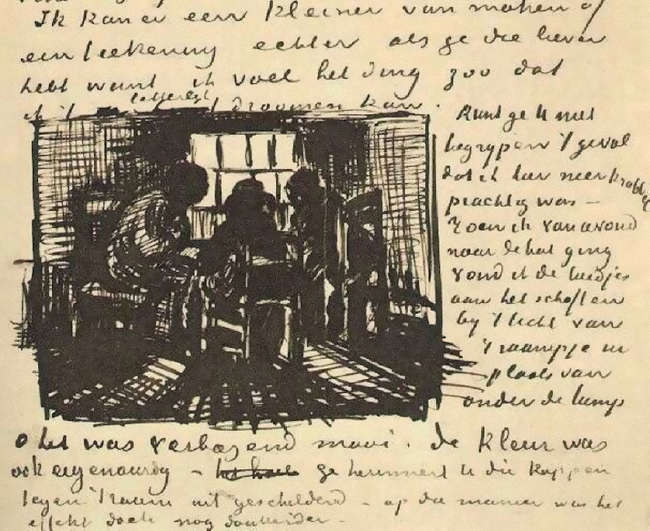 Ik kan er een kleiner van maken of
een teekening echter als ge die liever
hebt want ik voel het ding zoo dat
ik 't letterlijk droomen kan.
Kunt ge U niet
begrypen 't geval
dat ik hier neerkrabbel
prachtig was –
Toen ik van avond
naar de hut ging
vond ik de luidjes
aan het schoften
by 't licht van
't raampje in
plaats van
onder de lamp
o het was verbazend mooi. De kleur was
ook eigenaardig – ge herinnert U die koppen
tegen 't raam uit geschilderd – op die manier was het
effekt doch nog donkerder –